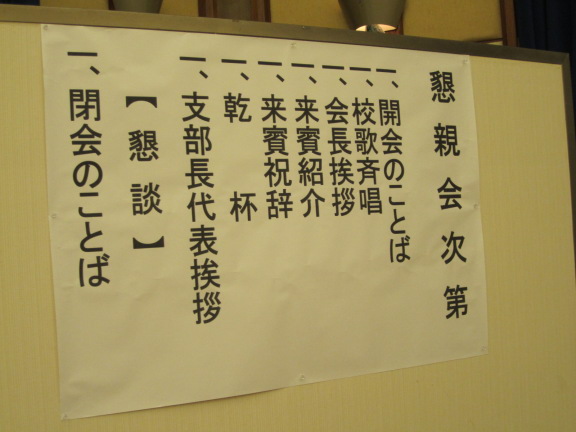 懇親会次第
一、開会のことば
一、校歌斉唱
一、会長挨拶
一、来賓紹介
一、来賓祝辞
一、乾　杯
一、支部長代表挨拶
【懇談】
一、閉会のことば